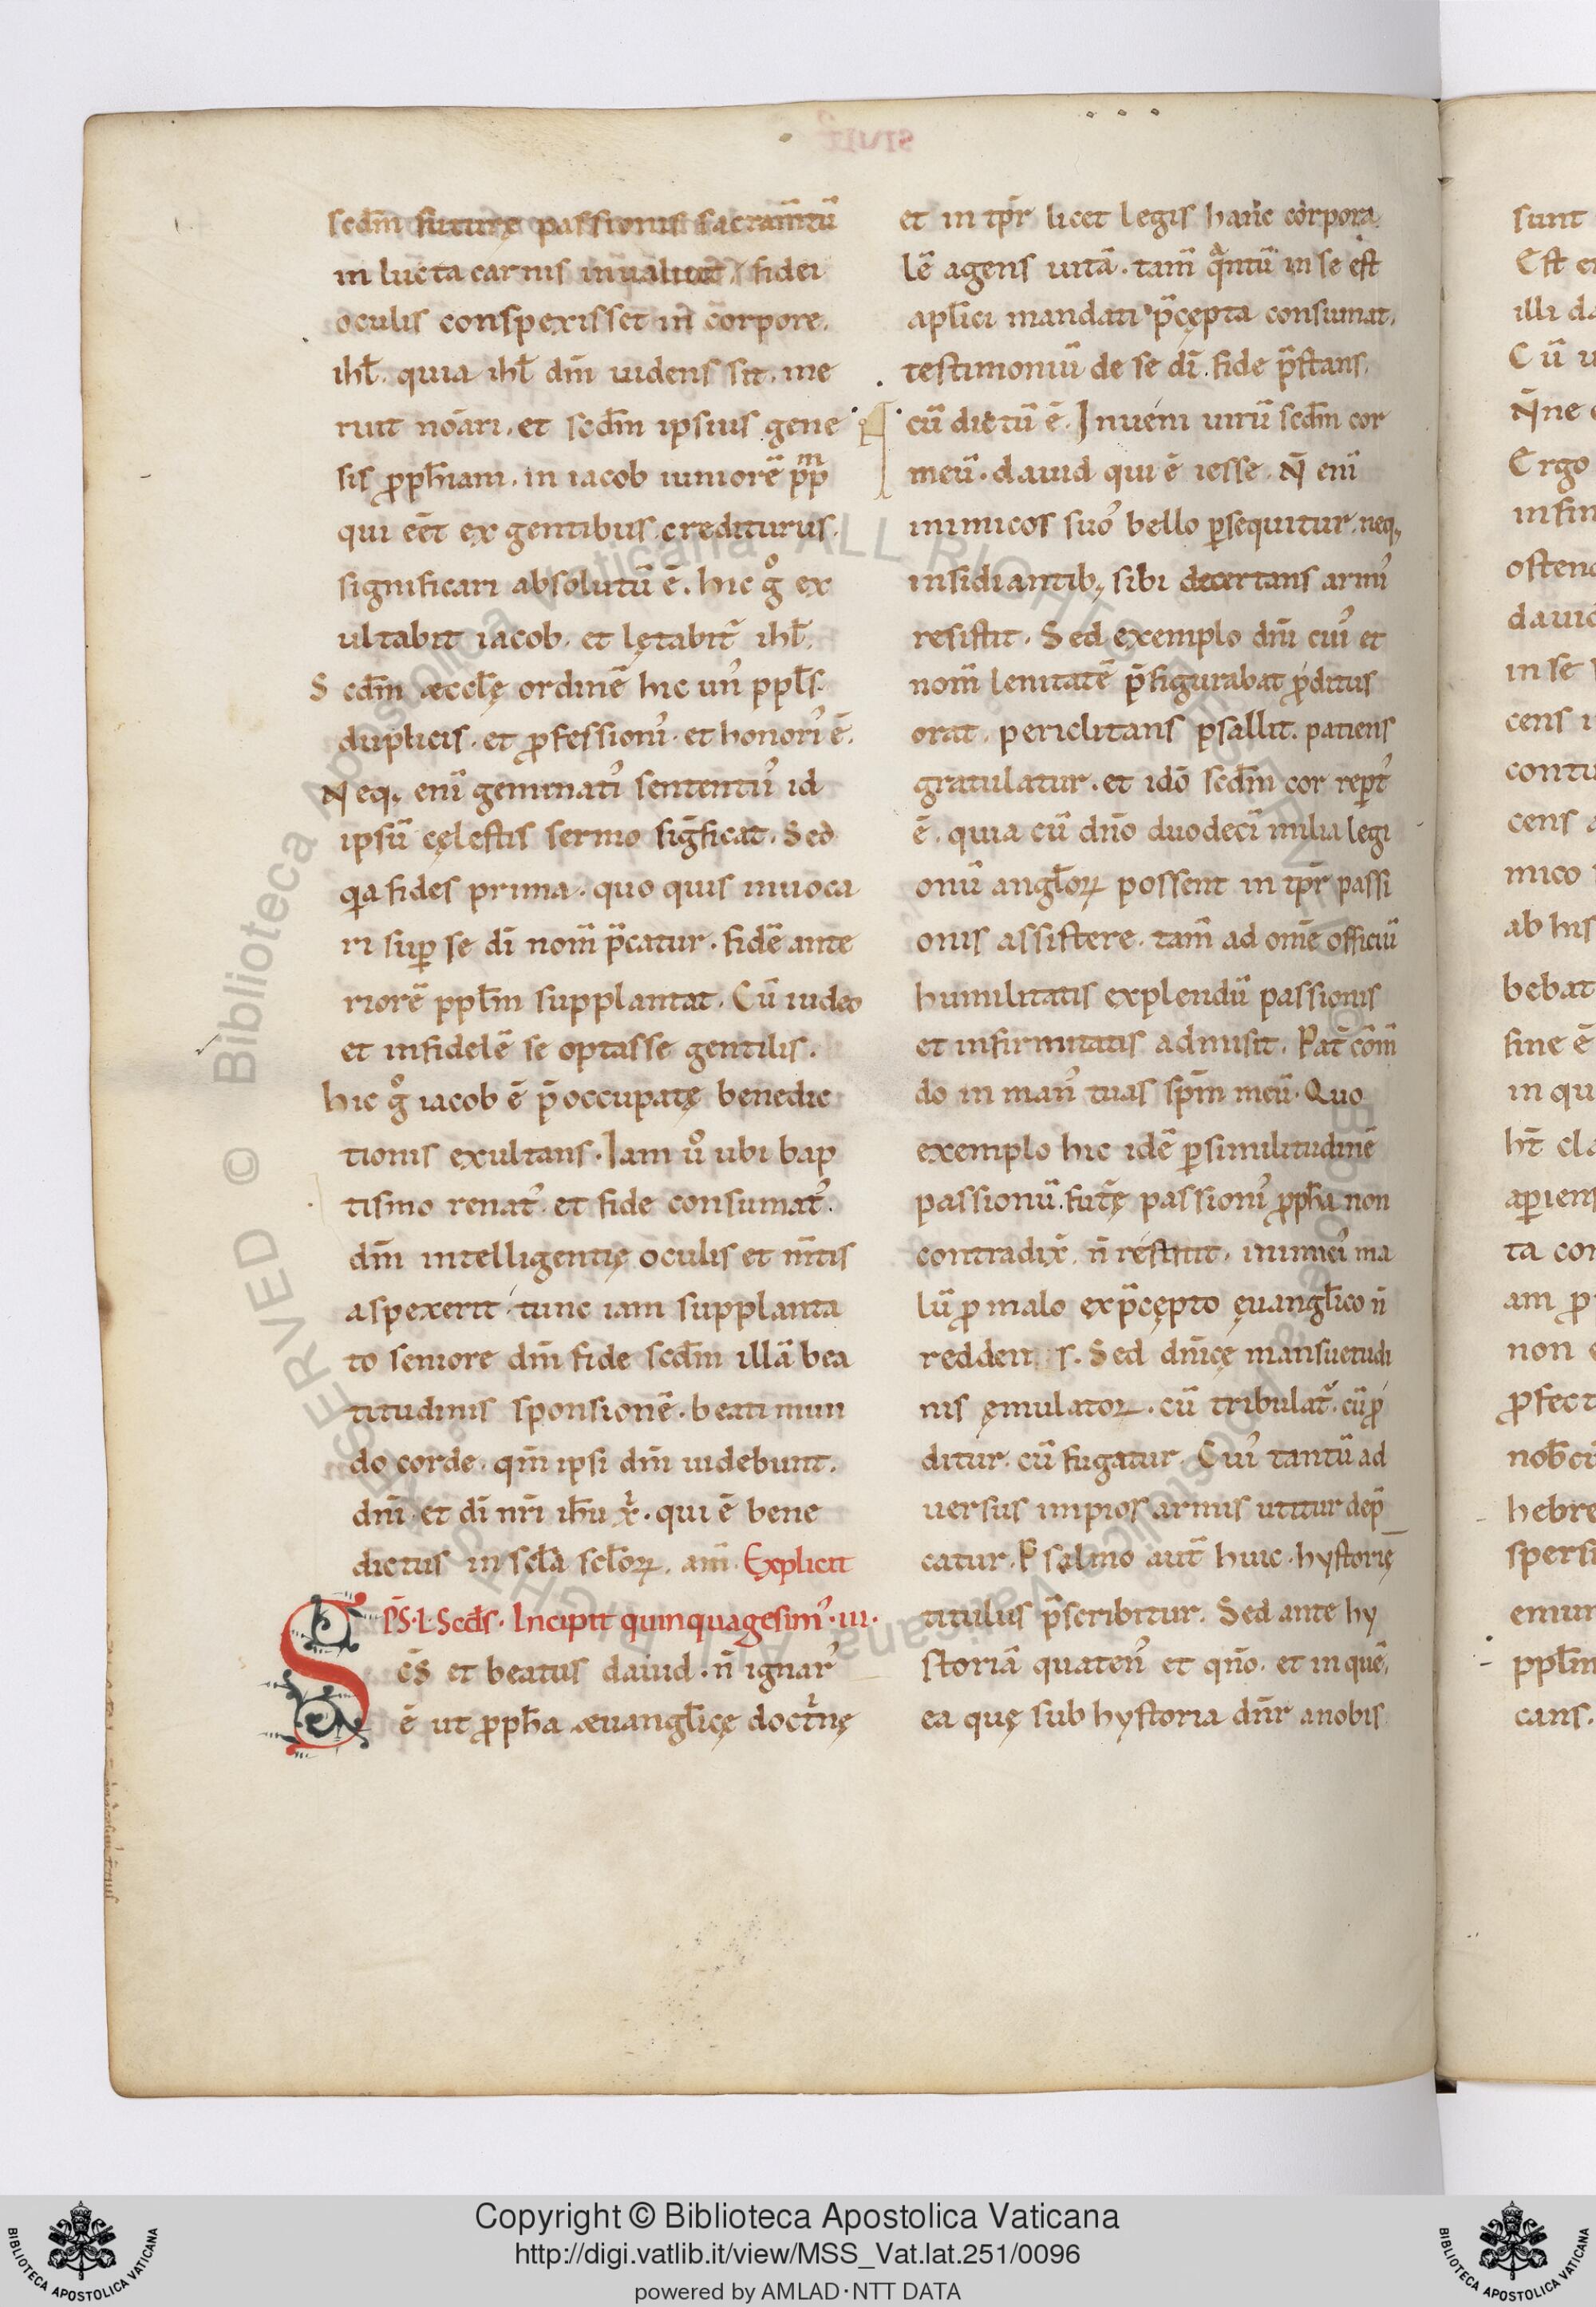 scdm̄ futurę passionis sacram̄tū
in lucta carnis inualuit, fidei
oculis conspexisset in corpore.
ihl̄. quia ihl̄ dm̄ uidens sit. me
ruit noāri. et scdm̄ ipsius gene
sis ꝓph̄iam. in iacob iuniorē pp̄m
qui eēt ex gentibus crediturus.
significari absolutū ē. hic gͦ ex
ultabit iacob. et lętabit᷑ ihl̄.
Scdm̄ æccl̄ę ordinē hic unꝰ ppl̄s.
duplicis. et ꝓfessionıꝰ. et honorıꝰ ē.
Neq; enī geminatıꝰ sententiıꝰ id
ipsū cęlestis sermo sigꝰficat. Sed
qa fides prima. quo quis inuoca
ri suꝑ se dī nom̄ p̄catur. fidē ante
riorē ppl̄m supplantat. Cū iudeo
et infidelē se optasse gentilis.
hic gͦ iacob ē p̄occupatę benedic
tionis exultans. Iam uͦ ubi bap
tismo renatꝰ et fide consumatꝰ.
dm̄ intelligentię oculis et m̄tis
aspexerit. tunc iam supplanta
to seniore dm̄ fide scdm̄ illā bea
titudinis sponsionē. beati mun
do corde. qm̄ ipsi dm̄ uidebunt.
dn̄i et dī nr̄i ih̄u x͛. qui ē bene
dictus in scl̄a scl̄oꝝ. am̄. Explicit
P̄S. L. Scd̄s. Incipit quinquagesimꝰ. III.
Sc̄S et beatus dauid. n̄ ignarꝰ
ē ut ꝓph̄a æuangl̄icę doctͥnę
et in tp̄r licet legis hanc corpora
lē agens uitā. tam̄ qᷓntū in se est
apl̄ici mandati p̄cępta consumat.
testimoniū de se dī. fide p̄stans.
cū dictū ē. Inueni uirū scdm̄ cor
meū. dauid qui ē iesse. N̄ enī
inimicos suoꝰ bello ꝑsequitur. neq;
insidiantib; sibi decertans armıꝰ
resistit. Sed exemplo dn̄i cuıꝰ et
nom̄ lenitatē p̄figurabat ꝓditus
orat. periclitans psallit. patiens
gratulatur. et idō scdm̄ cor reꝑtꝰ
ē. quia cū dn̄o duodecī milia legi
onū angl̄oꝝ possent in tp̄r passi
onis assistere. tam̄ ad om̄e officiū
humilitatis explendū passionis
et infirmitatis admisit. Pat̄ com̄
do in manꝰ tuas sp̄m meū. Quo
exemplo hic idē ꝑsimilitudinē
passionū. fut̄ę passionıꝰ ꝓph̄a non
contradix̄. n̄ restitit. inimicıꝰ ma
lū ꝓ malo ex p̄cępto ęuangl̄ico n̄
redden s. Sed dn̄icę mansuetudi
nis ęmulatoꝝ. cū tribulat᷑. cū ꝓ
ditur. cū fugatur. Cuıꝰ tantū ad
uersus impios armis utitur dep̄
catur. Psalmo aut̄ huic. hystorię
titulus p̄scribitur. Sed ante hy
storiā quatenꝰ et qn̄o. et in quē.
ea quę sub hystoria dn̄r a nobis.
sunt
illi da
N̄ne
Ergo
in se
cens
mico
ab his
bebat
fine ē
in qu
aꝑiens
non
ꝓfect
hebre
ppl̄m
cans.
Copyright © Biblioteca Apostolica Vaticana
http://digi.vatlib.it/view/MSS_Vat.lat.251/0096
powered by AMLAD · NTT DATA
BIBLIOTECA APOSTOLICA VATICANA
BIBLIOTECA APOSTOLICA VATICANA